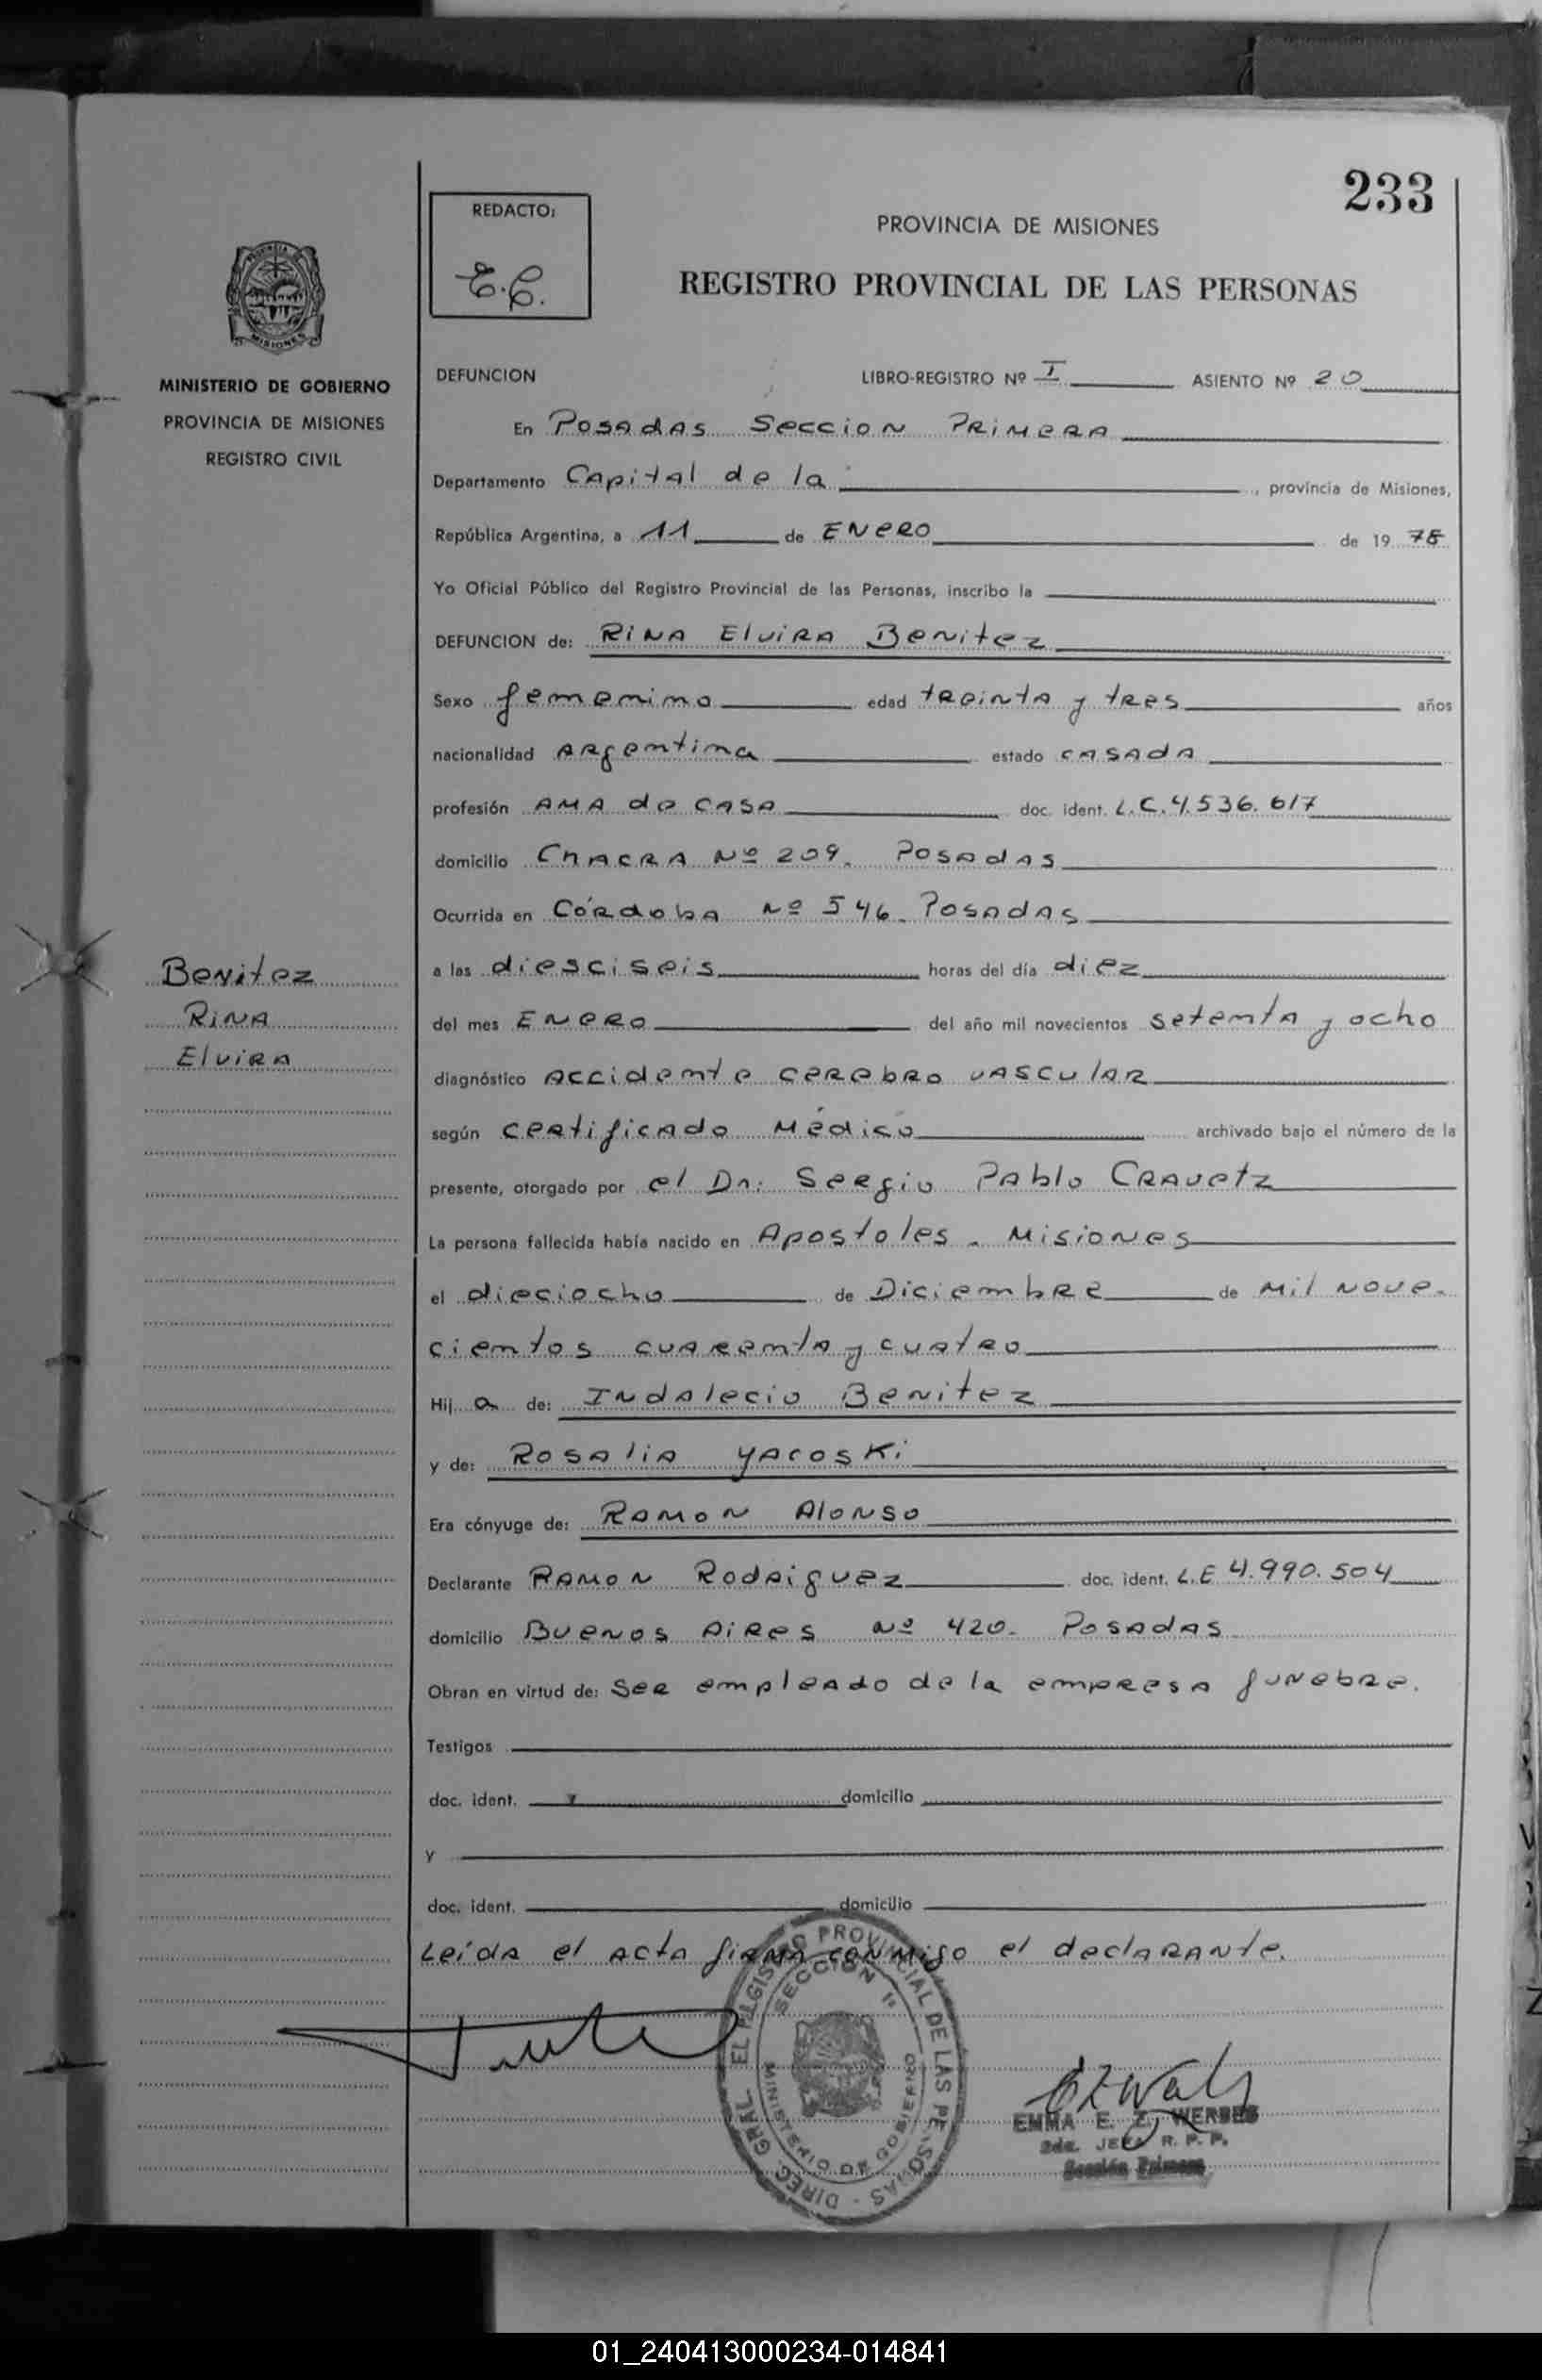 233
REDACTO:
E.C.
PROVINCIA DE MISIONES
REGISTRO PROVINCIAL DE LAS PERSONAS
MISIONES
MINISTERIO DE GOBIERNO
PROVINCIA DE MISIONES
REGISTRO CIVIL
DEFUNCION LIBRO-REGISTRO Nº I ASIENTO Nº 20
En Posadas Seccion Primera
Departamento Capital de la , provincia de Misiones,
República Argentina, a 11 de Enero de 19 78
Yo Oficial Público del Registro Provincial de las Personas, inscribo la
DEFUNCION de: Rina Elvira Benitez
Sexo femenino edad treinta y tres años
nacionalidad Argentina estado casada
profesión Ama de casa doc. ident. L.C. 4.536.617
domicilio Chacra Nº 209. Posadas
Ocurrida en Córdoba Nº 546. Posadas
a las diesciseis horas del día diez
del mes Enero del año mil novecientos setenta y ocho
diagnóstico Accidente cerebro vascular
según certificado Médico archivado bajo el número de la
presente, otorgado por el Dr: Sergio Pablo Cravetz
La persona fallecida había nacido en Apostoles. Misiones
el dieciocho de Diciembre de Mil nove-
cientos cuarenta y cuatro
Hij a de: Indalecio Benitez
y de: Rosalia Yacoski
Era cónyuge de: Ramon Alonso
Declarante Ramon Rodriguez doc. ident. L.E 4.990.504
domicilio Buenos Aires Nº 420. Posadas
Obran en virtud de: Ser empleado de la empresa funebre.
Testigos
doc. ident. domicilio
y
doc. ident. domicilio
Leida el acta firma conmigo el declarante.
Benitez
Rina
Elvira
DIREC. GRAL. EL REGISTRO PROVINCIAL DE LAS PERSONAS
SECCION 1ª
MINISTERIO DE GOBIERNO
EMMA E. Z. WERBES
2da. JEFA R. P. P.
Sección Primera
01_240413000234-014841